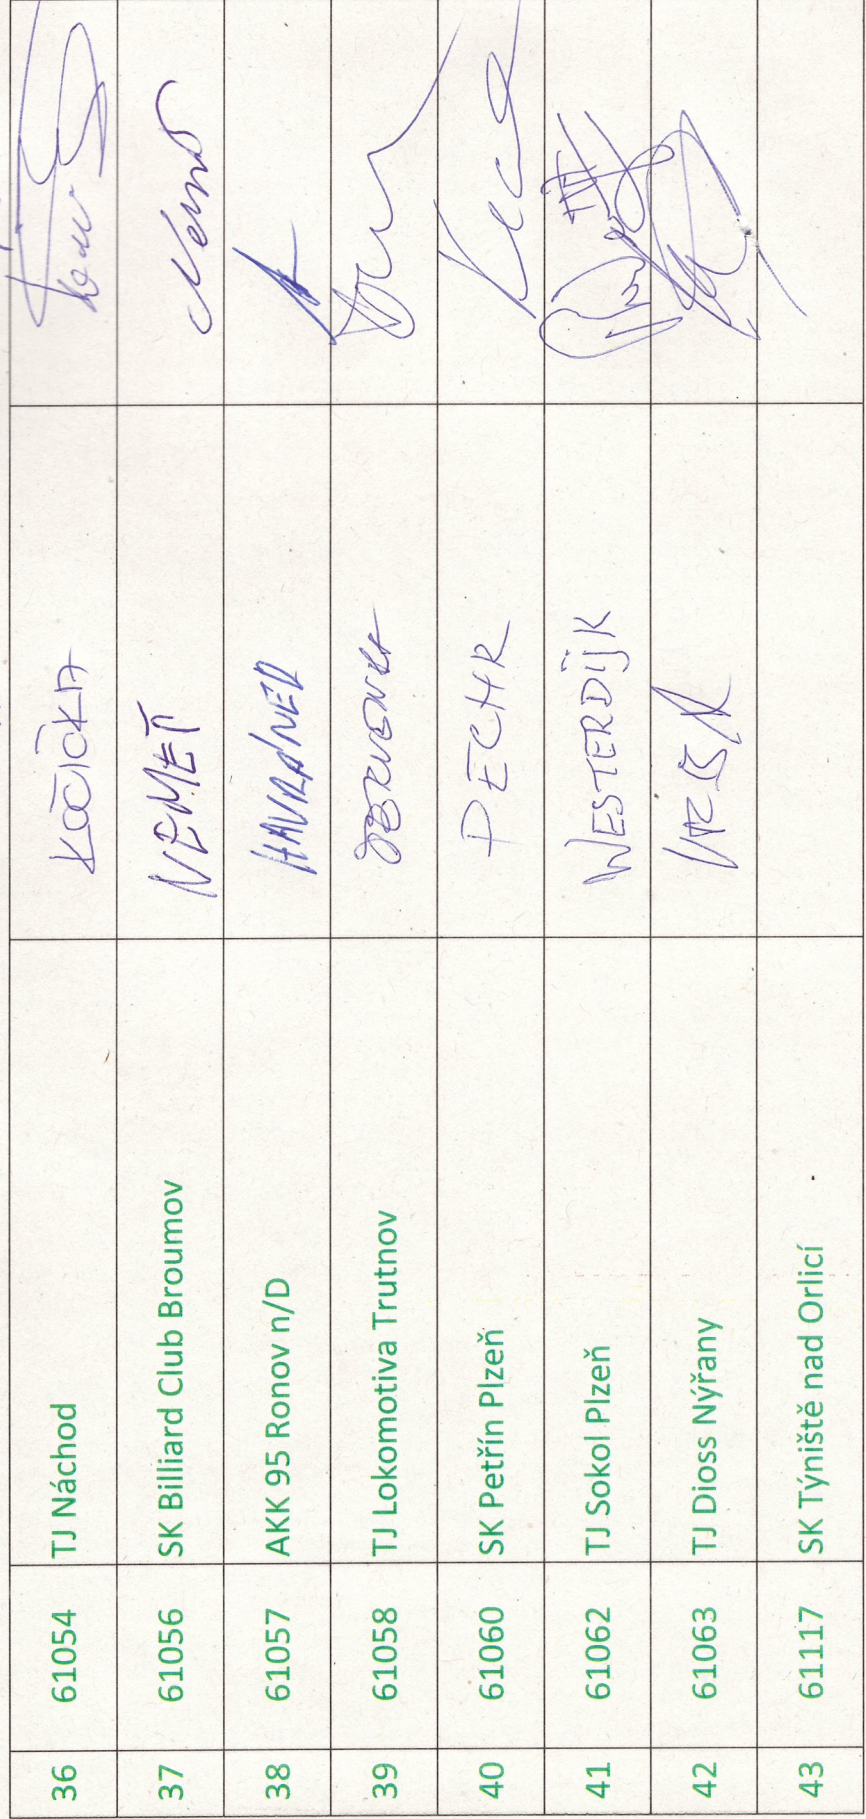 36 61054 TJ Náchod KOČIČKA
37 61056 SK Billiard Club Broumov NEMEŤ
38 61057 AKK 95 Ronov n/D
39 61058 TJ Lokomotiva Trutnov
40 61060 SK Petřín Plzeň PECHR
41 61062 TJ Sokol Plzeň WESTERDIJK
42 61063 TJ Dioss Nýřany VRBA
43 61117 SK Týniště nad Orlicí